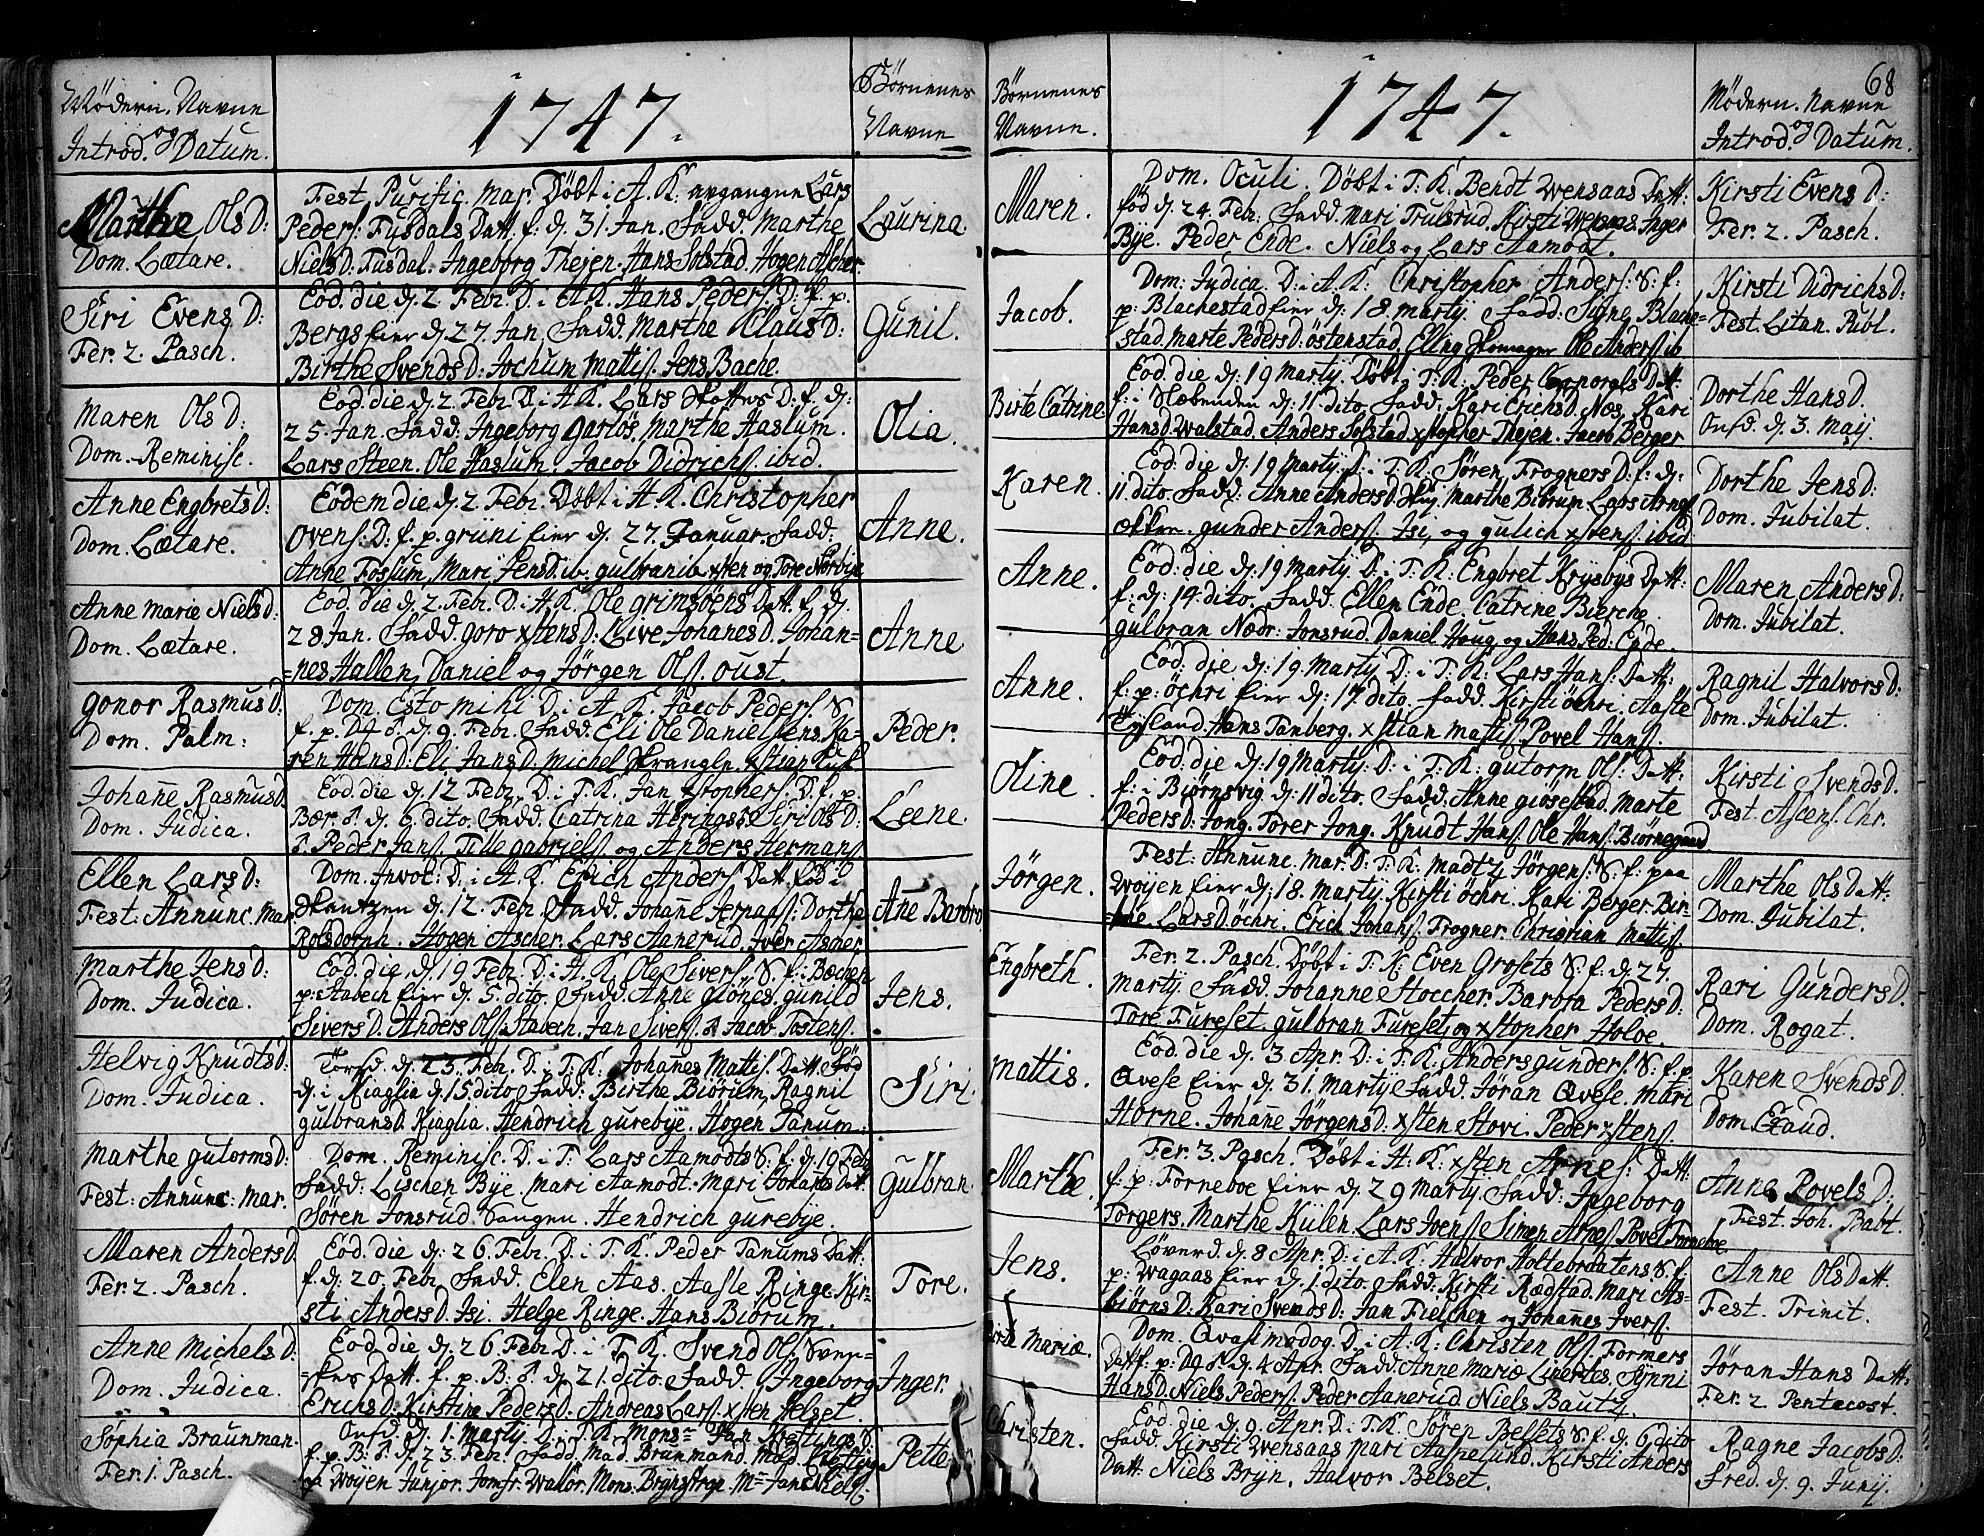 Mödern. Navne
og
Introd. Datum.
1747.
Börnenes
Navne
Marthe Ols D:
Dom. Lætare.
Fest. Purific. Mar. Döbt i A. K. avgangne Lars
Peders. Fusdals Datt. f. d. 31 Jan. Fadd. Marthe
Niels D. Fusdal. Ingeborg Thejen. Hans Solstad. Hogen Ascher
Laurina.
Siri Evens D:
Fer. 2. Pasch.
Eod. die d. 2. Febr. D. i A. K. Hans Peders. D: f. p.
Bergs Eier d. 27 Jan. Fadd. Marthe Claus D:
Birthe Svends D: Jochum Mattis. Jens Bache.
Gunil.
Maren Ols D:
Dom. Reminisc.
Eod. die d. 2. Febr. D. i H. K. Lars D. f. d:
25. Jan. Fadd: Ingeborg Garlös. Marthe Haslum.
Lars Steen. Ole Haslum. Jacob Didrichs. ibid.
Olia.
Anne Engbrets D:
Dom. Lætare.
Eodem die d. 2. Febr. Döbt i H. K. Christopher
Ovens. D: f. p. Griini Eier d. 27. Januar. Fadd:
Anne Fossum, Mari Jens D. ib. Gulbran ib. xsten og Tore Norbye
Anne.
Anne Marie Niels D:
Dom. Lætare.
Eod. die d. 2. Febr. D. i H. K. Ole Grimsöens Datt. f. d.
28 Jan. Fadd. Goro xstens D: Live Johanes D. Johan=
=nes Hallen, Daniel og Jörgen Ols. Oust.
Anne
Gonor Rasmus D:
Dom. Palm:
Dom. Esto mihi D. i A. K. Jacob Peders. S.
f. p. d. 9. Febr. Fadd. Eli Ole Danielsens. Ka=
ren Hans D. Eli Jans D. Michel xstian
Peder.
Johane Rasmus D.
Dom. Judica.
Eod. die d. 12 Febr. D. i T. K. Jan xstophers. D. f. p.
Bær. d. 6. dito. Fadd. Catrina Siri Ols D:
Peder Jans. Tille Gabriels. og Anders Hermans
Leene.
Ellen Lars D:
Fest: Annunc. Mar.
Dom. Invoc: D: i A. K. Erich Anders. Datt. föd i
Skantzen d. 12 Febr. Fadd. Johane Dorthe
Rolsdorph. Hogen Ascher. Lars Aanerud. Iver Asmer
Ane Barbro
Marthe Jens D:
Dom. Judica.
Eod. die d. 19 Febr. D. i H. K. Ole Sivers. S. f. i Bæchen
p: Stabech Eier d. 5. dito. Fadd. Anne Giönes. Gunild
Sivers D. Anders Ols. Stabech. Jan Sivers. Jacob Tostens.
Jens.
Helvig Knudts D:
Dom. Judica.
Torsd. d. 23. Feb. D. i T. K. Johanes Mattis. Datt. Föd
d. i Kiaglia d. 15. dito Fadd: Birthe Biörum, Ragnil
Gulbrans D. Kiaglia. Hendrich Gurebye. Hogen Tanum.
Siri.
Marthe Gutorms D:
Fest: Annunc: Mar.
Dom. Reminisc. D. i T. Lars Aamodts S: f. d. 19 Feb.
Fadd: Lischen Bye. Mari Aamodt. Mari
Sören Jonsrud. Hendrich Gurebye.
Gulbran.
Maren Anders D.
Fer. 2. Pasch.
Eod. die d: 26. Febr. D. i T. K. Peder Tanums Datt:
f. d. 20. Febr. Fadd. Elen Aas. Aasle Ringe. Kir=
sti Anders D. Isi. Helge Ringe. Hans Biörum.
Tore.
Anne Michels D.
Dom. Judica.
Eod. die d. 26 Febr D. i T. K. Svend Ols.
Datt. f. p. B: d. 21. dito. Fadd. Ingeborg
Erichs D. Kirstine Peders D. Andreas Lars. xsten Helset.
Inger.
Sophia Braunman.
Fer. 1. Pasch.
Onsd. d. 1. Marty D. i T. K. Mons=
f. p. B. d. 23. Feb. Fadd. Mad. Braunmand. Mad.
Woyen Junior. Jomfr. Wallör. Mons.
Pette
68
Börnenes
Navne.
1747.
Mödern. Navne
og
Introd. Datum.
Maren.
Dom. Oculi. Döbt i T. K. Bendt Wensaas Datt:
föd d. 24 Feb: Fadd. Mari Trulsrud. Kirsti Wensaas. Inger
Bye. Peder Ende. Niels og Lars Aamodt.
Kirsti Evens D:
Fer. 2. Pasch.
Jacob.
Dom: Judica. D: i A. K: Christopher Anders: S: f:
p: Blachestad Eier d: 18. Marty. Fadd: Signe Blache=
stad, Marte Peders D: Östenstad, Elling Skomager Ole Anders. ib
Kirsti Didrichs D:
Fest. Litan. Publ.
Birte Catrine
Eod. die d: 19 Marty. Döbt. T: K: Peder Corporals Datt:
f: i Slæbenden d: 11 dito. Fadd: Kari Erichs D. Næs. Kari
Hans D. Walstad. Anders Solstad. xstopher Thejen. Jacob Berger
Dorthe Hans D.
Onsd. d. 3. Maij.
Karen.
Eod: die d: 19 Marty D: i T: K: Sören Frogners D: f: d:
11 dito. Fadd: Anne Anders D. Marthe Biörum Lars Arnes
Gunder Anders. Isi, og Gulich xstens. ibid
Dorthe Jens D:
Dom. Jubilat.
Anne.
Eod: die d: 19 Marty: D: i T: K: Engbret Krysbys Datt:
f: d: 14. dito. Fadd. Ellen Ende. Catrine Bierche.
Gulbran Nedr: Jonsrud. Daniel Houg og Hans Ped: Ende.
Maren Anders D:
Dom. Jubilat.
Anne.
Eod: die d: 19 Marty D: i T: K: Lars Hans: Datt:
f: p: Öchri Eier d: 17. dito. Fadd. Kirsti Öchri. Aaste
Hans Tanberg. xstian Mattis. Povel Hans.
Ragnil Halvors D:
Dom. Jubilat.
Oline.
Eod. die d: 19 Marty: D: i T: K: Gutorm Ols: Datt:
f: i Biörnsvig d: 11 dito. Fadd: Anne Giösestad. Marte
Peders D: Jong. Torer Jong. Knudt Hans. Ole Hans. Biörnegaard
Kirsti Svends D.
Fest. Ascens. Chr.
Jörgen.
Fest: Annunc. Mar. D: T: K: Madtz Jörgens. S. f. paa
Woyen Eier d: 18. Marty. Kirsti Öchri. Kari Berger. Bir=
=the Lars D Öchri. Erich Johans. Frogner. Christian Mattis.
Marthe Ols Datt.
Dom. Jubilat.
Engbreth.
Fer. 2. Pasch. Döbt i T. K. Even Grosets S: f. d: 27.
Marty. Fadd. Johanne Stoccher. Barbra Peders D:
Tore Fureset. Gulbran Fureset, og xstopher Holoe.
Kari Gunders D.
Dom. Rogat.
Mattis.
Eod. die d. 3. Apr. D: i T: K: Anders Gunders. S: f. p.
Qvese Eier d: 31. Marty Fadd Joran Qvese. Mari
Horne. Johane Jörgens D. xsten Stovi. Peder xstens.
Karen Svends D.
Dom. Exaud.
Marthe.
Fer. 3. Pasch. Döbt i H: K: xsten Arnes: Datt:
f: p: Forneboe Eier d: 29 Marty. Fadd: Ingeborg
Torgers. Marthe Külen. Lars Ivers. Simen Arnes. Povel Forneboe.
Anne Povels D:
Fest. Joh. Babt.
Jens.
Löverd. d. 8 Apr. D: i A. K. Halvor Holtebratens S. f
p: Wagaas Eier d: 1. dito. Fadd. Kirsti Rædstad. Mari As=
biörns D: Kari Svends D: Jan Fielchen og Johanes Ivers.
Anne Ols Datt.
Fest. Trinit.
Mariæ.
Dom. Qvasimodog. D. i A. K: Christen Ols. Formers
Datt f: p: d. 4. Apr. Fadd: Anne Mariæ Livertes. Synni
Hans D. Niels Peders. Peder Aanerud. Niels Bautz.
Jöran Hans Datt.
Fer. 2 Pentecost.
Christen.
Eod. die d. 9. Apr. D. i T. K. Sören Belsets S. f. d. 6 dito
Fadd. Kirsti Wensaas Mari Aaspelund. Kirsti Anders
Datt. Niels Bryn. Halvor Belset.
Ragne Jacobs D:
Fred. d. 9. Junij.